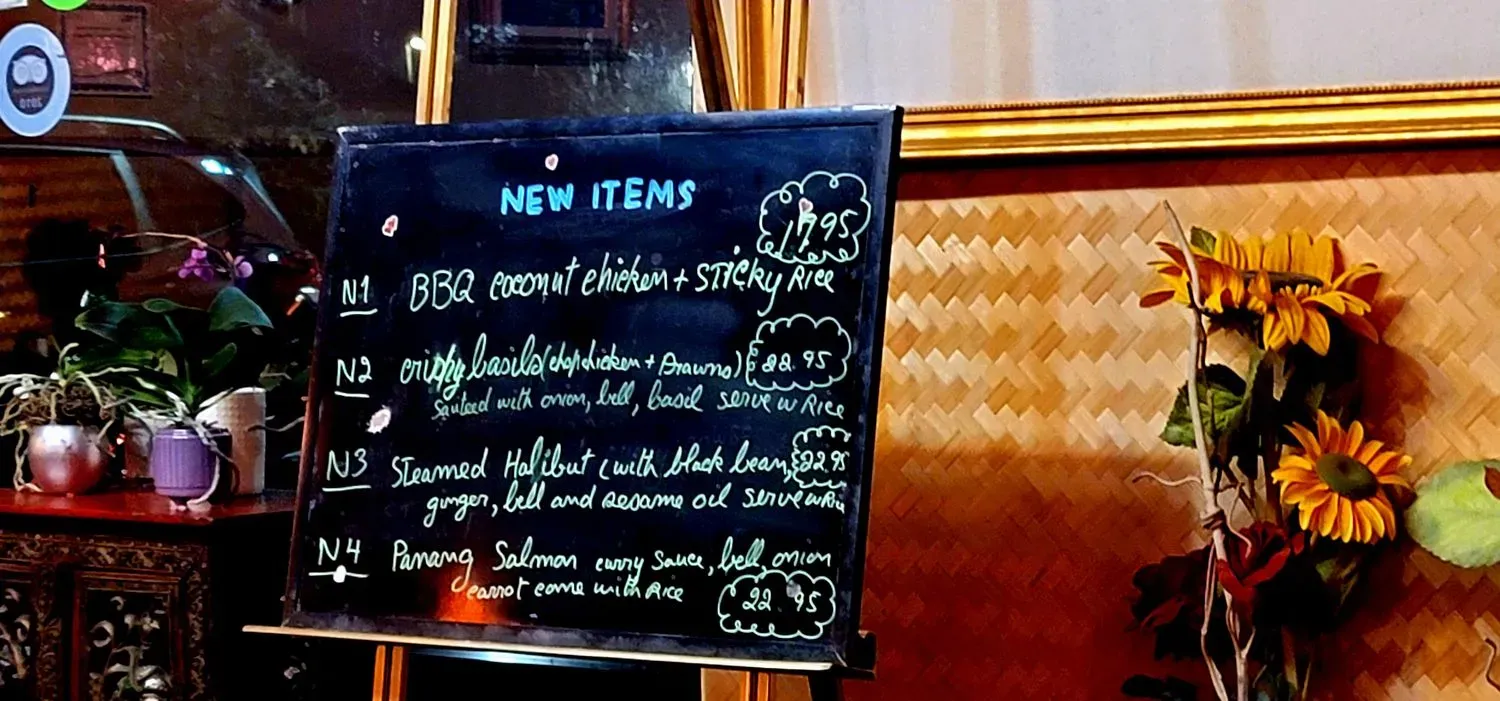 NEW ITEMS
1795
N1 BBQ coconut chicken + STICKY RICE
N2 crispy basils (chop chicken + Prawns) 22.95
sauteed with onion, bell, basil serve w Rice
N3 Steamed Halibut (with black bean, 22.95
ginger, bell and sesame oil serve w Rice
N4 Panang Salmon curry sauce, bell, onion
carrot come with Rice
22.95